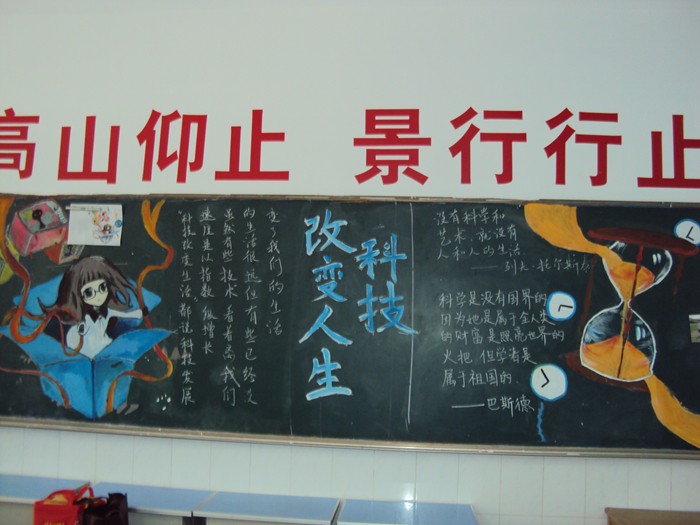 高山仰止 景行行止
科技改变生活都说科技发展
速度是以指数级增长
虽然有些技术看着离我们
的生活很远但有些已经改
变了我们的生活
科技
改变人生
没有科学和
艺术，就没有
人和人的生活
——列夫·托尔斯泰
科学是没有国界的
因为她是属于全人类
的财富是照亮世界的
火把，但学者是
属于祖国的.
——巴斯德